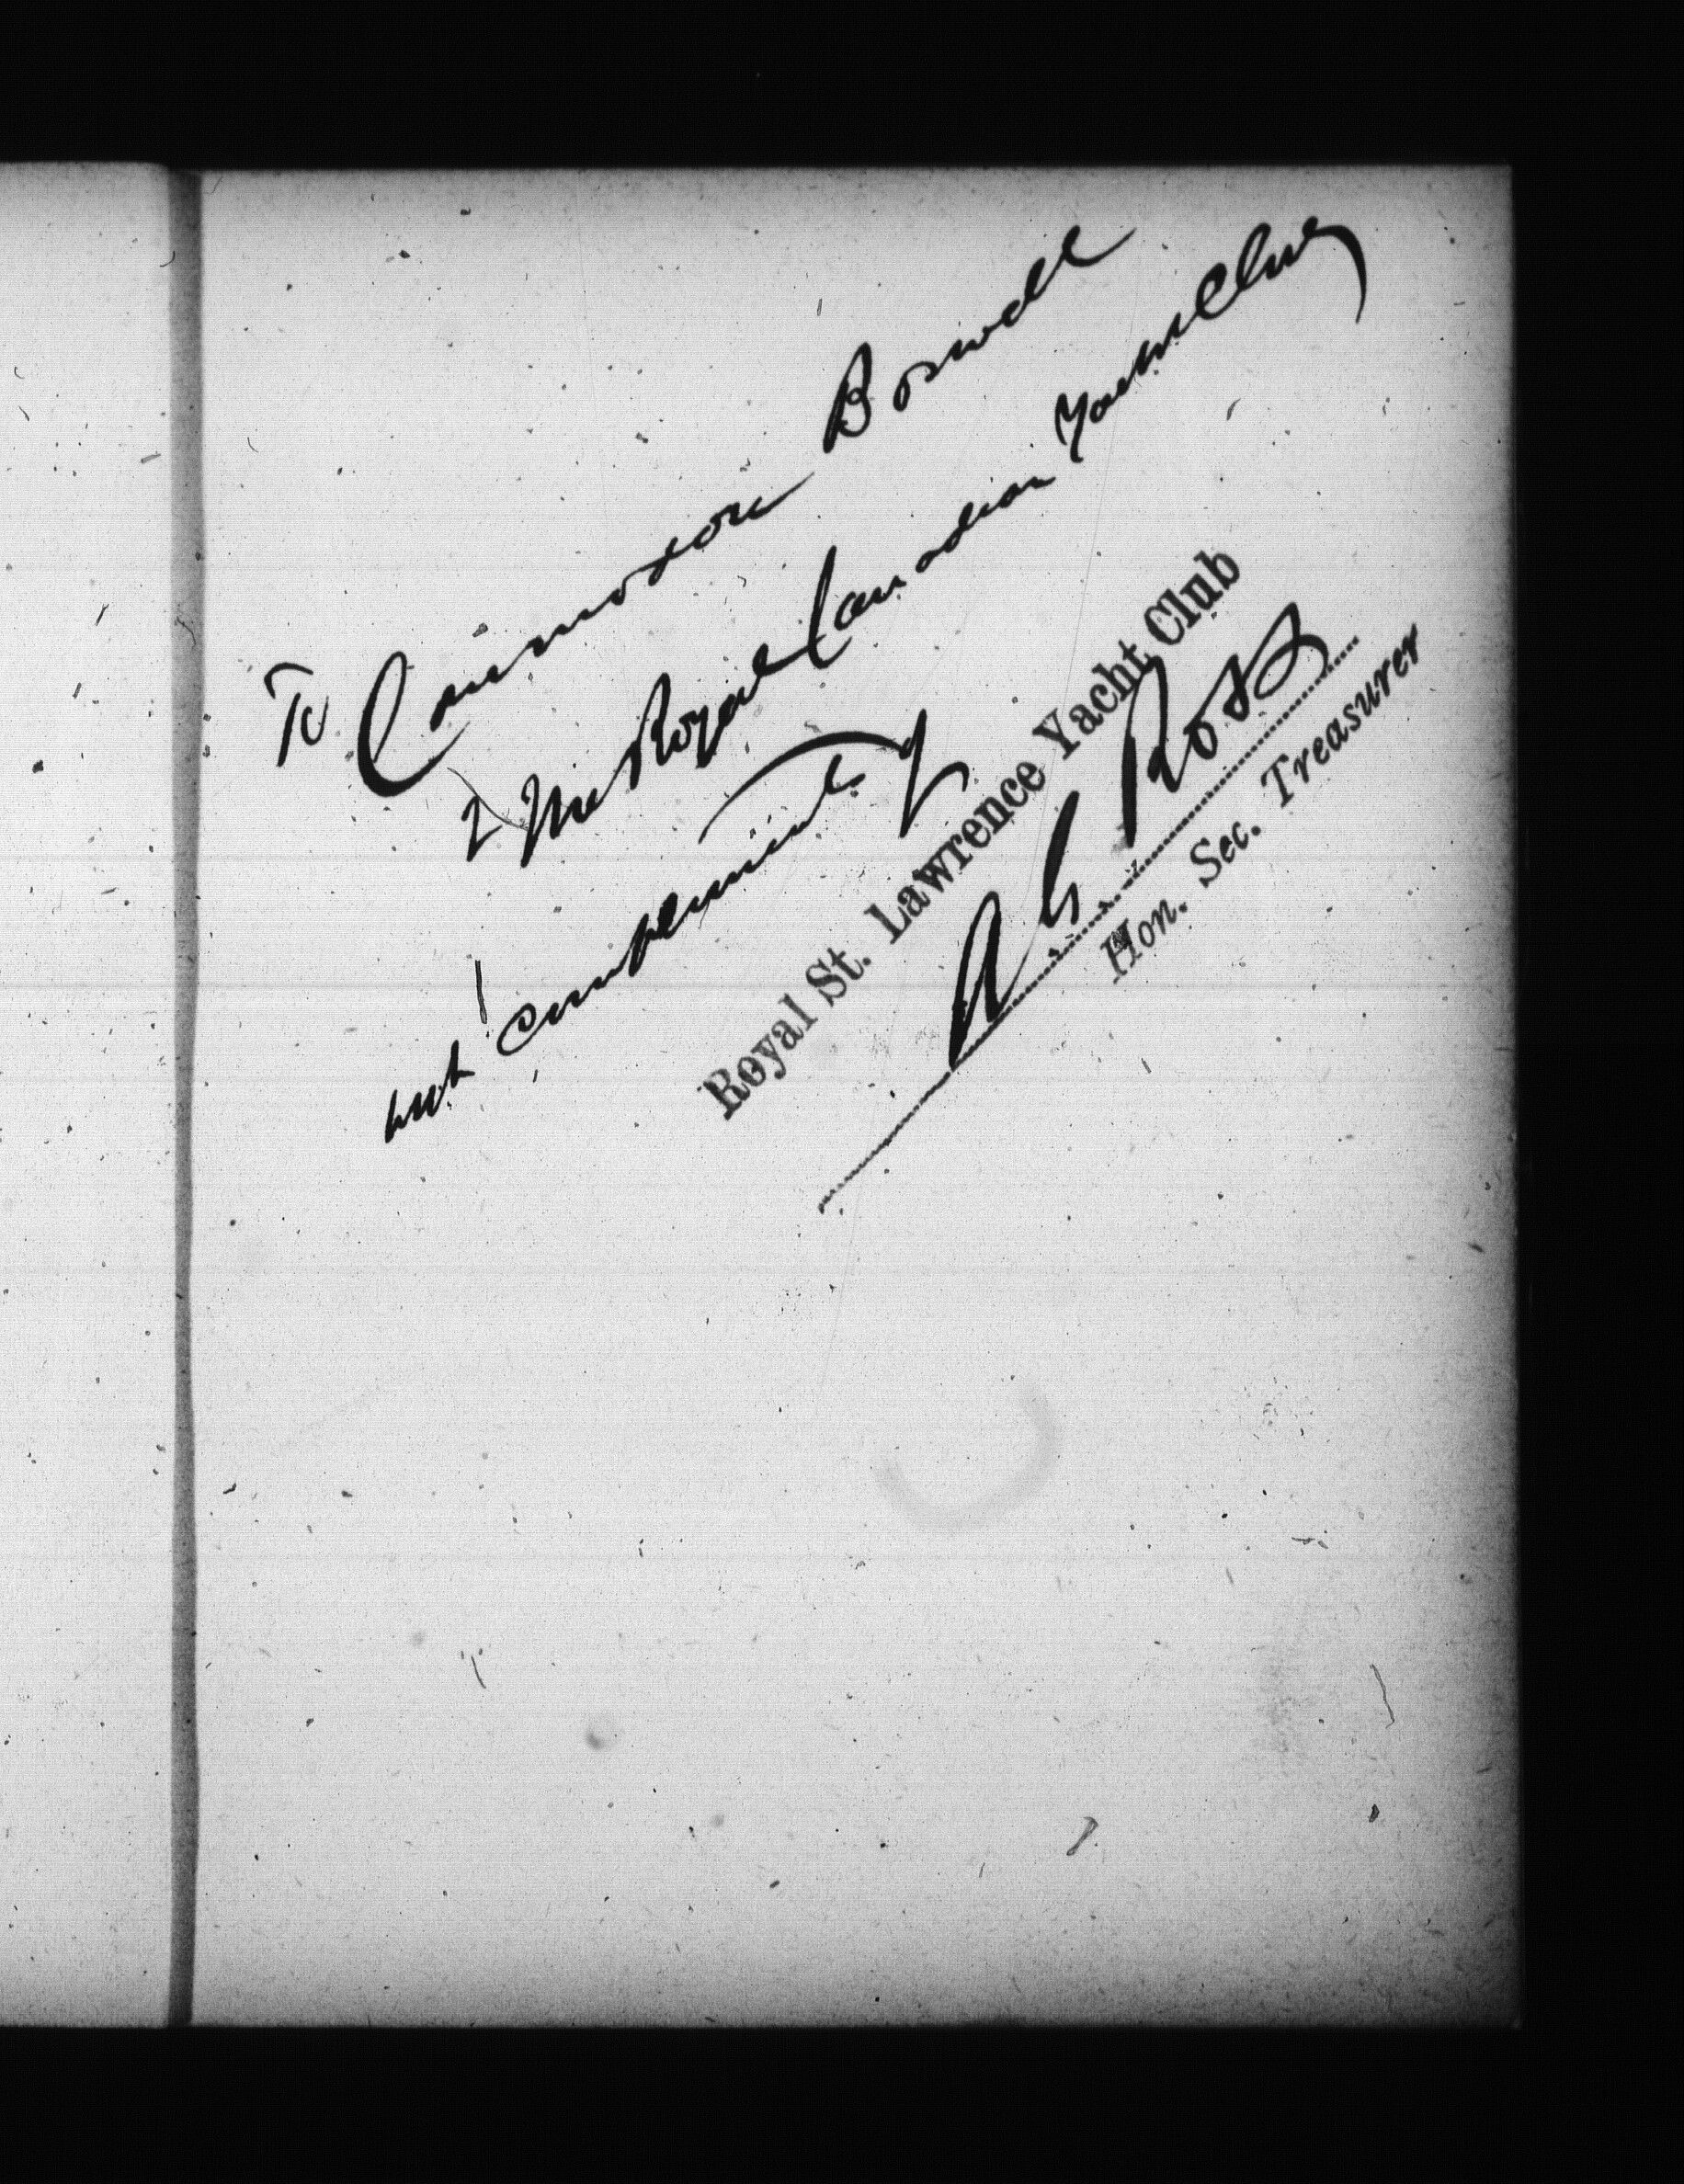 To Commodore Boswell
of The Royal Canadian Yacht Club
with compliments of
Royal St. Lawrence Yacht Club
Ross
Hon. Sec. Treasurer